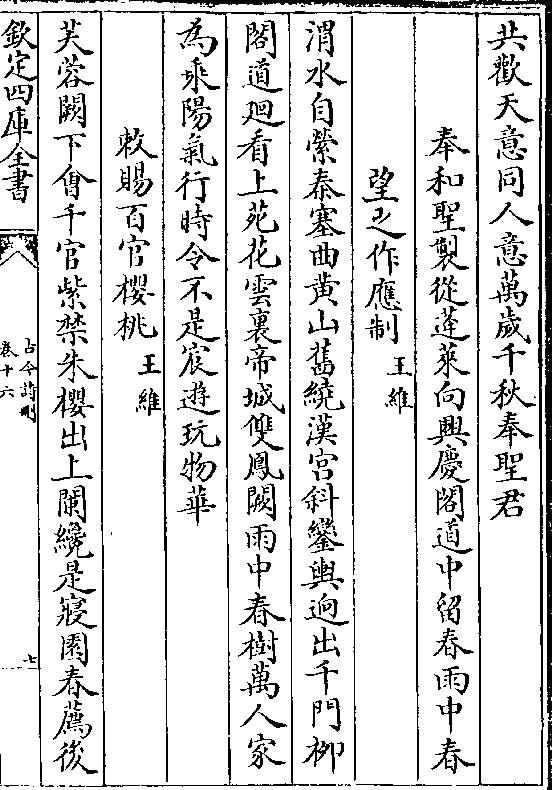 共歡天意同人意萬歲千秋奉聖君
奉和聖製從蓬萊向興慶閣道中留春雨中春
望之作應制 王維
渭水自縈秦塞曲黄山舊繞漢宮斜鑾輿逈出千門栁
閣道廻看上苑花雲裏帝城雙鳳闕雨中春樹萬人家
為乘陽氣行時令不是宸遊玩物華
敕賜百官櫻桃 王維
芙蓉闕下㑹千官紫禁朱櫻出上闌纔是寢園春薦後
欽定四庫全書
古今詩刪
卷十六
七